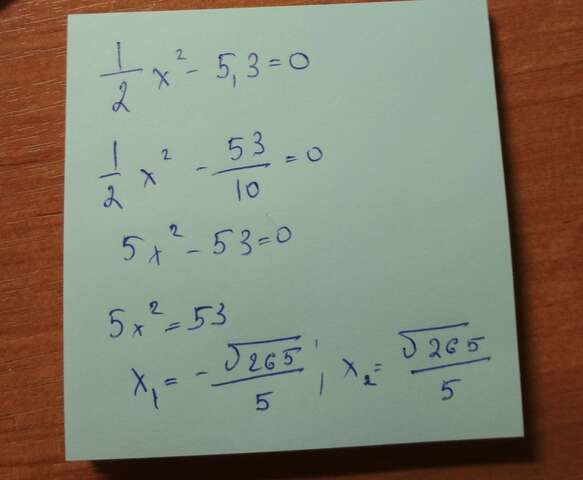 1/2 x² - 5,3 = 0
1/2 x² - 53/10 = 0
5x² - 53 = 0
5x² = 53
x₁ = - √265/5 ; x₂ = √265/5